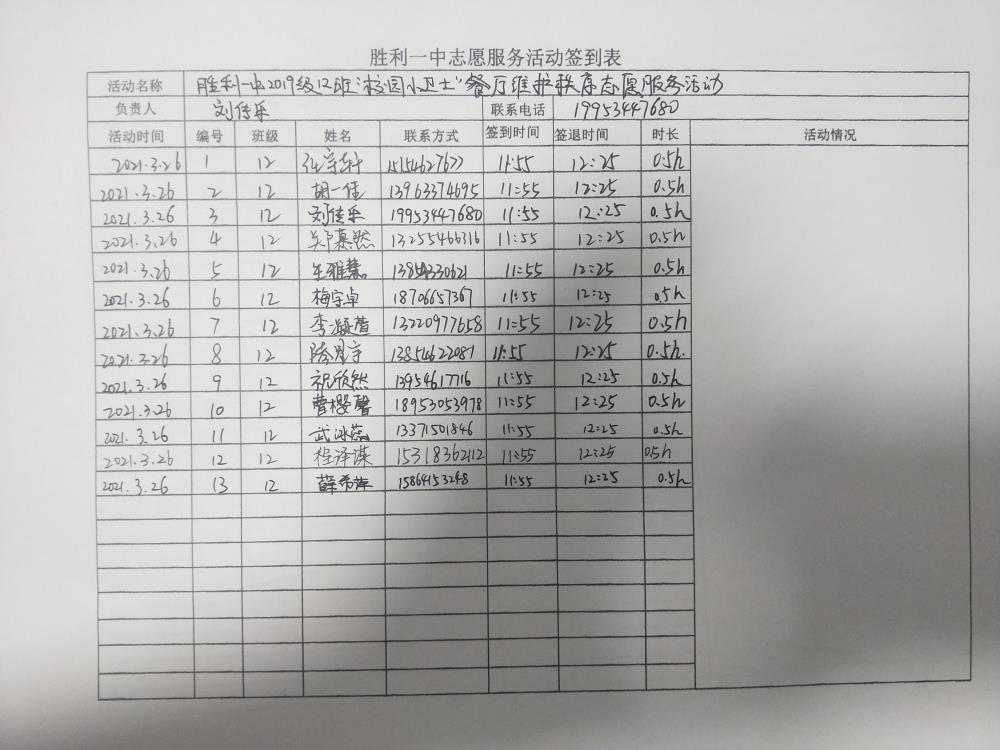 胜利一中志愿服务活动签到表
活动名称 胜利一中2019级12班“校园小卫士”餐厅维护秩序志愿服务活动
负责人 刘佳乐 联系电话 19953447680
活动时间 编号 班级 姓名 联系方式 签到时间 签退时间 时长 活动情况
2021.3.26 1 12 11:55 12:25 0.5h
2021.3.26 2 12 胡一佳 13963374695 11:55 12:25 0.5h
2021.3.26 3 12 刘佳乐 19953447680 11:55 12:25 0.5h
2021.3.26 4 12 郑慕然 13255466316 11:55 12:25 0.5h
2021.3.26 5 12 王雅慧 11:55 12:25 0.5h
2021.3.26 6 12 梅宇卓 18706657367 11:55 12:25 0.5h
2021.3.26 7 12 李凝萱 13220977658 11:55 12:25 0.5h
2021.3.26 8 12 13854622081 11:55 12:25 0.5h.
2021.3.26 9 12 祝欣然 13954617716 11:55 12:25 0.5h
2021.3.26 10 12 曹樱馨 18953053978 11:55 12:25 0.5h
2021.3.26 11 12 武冰蕊 13371501846 11:55 12:25 0.5h
2021.3.26 12 12 程泽谋 15318362112 11:55 12:25 0.5h
2021.3.26 13 12 薛希萍 15864153248 11:55 12:25 0.5h